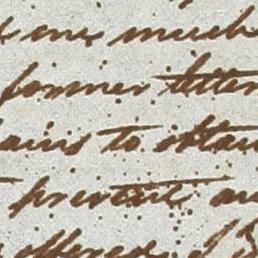 one much
former letter
ains to obtain
prevent an
offered